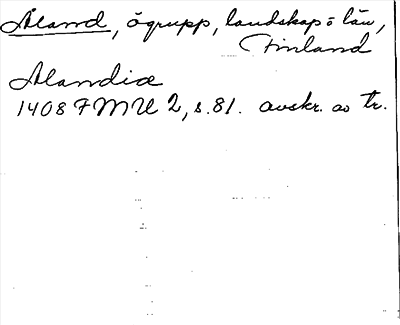 Åland, ögrupp, landskap o län,
Finland
Alandia
1408 FMU 2, s. 81. avskr. av tr.